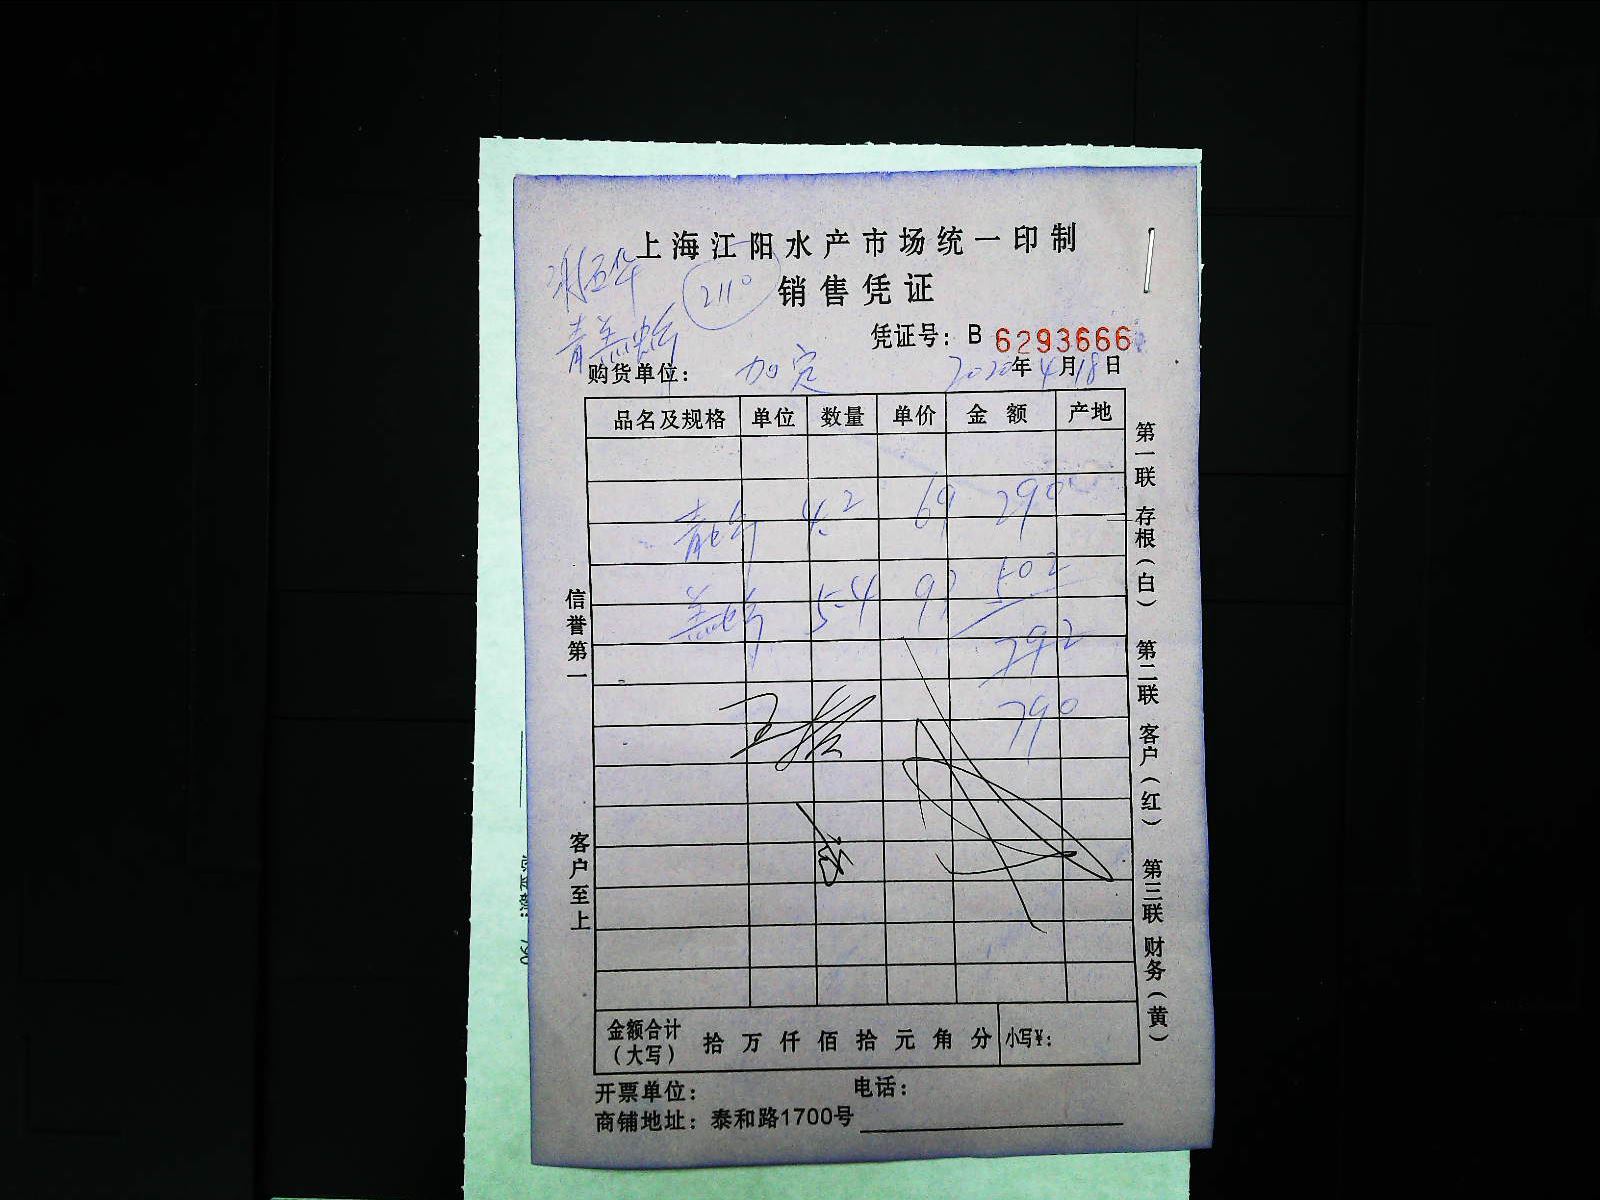 上海江阳水产市场统一印制
2110 销售凭证
凭证号：B 6293666
购货单位： 加定 2020年4月18日
品名及规格 单位 数量 单价 金额 产地
4.2 69 290
5.4 93 502
792
790
金额合计（大写） 拾 万 仟 佰 拾 元 角 分 小写¥：
开票单位： 电话：
商铺地址：泰和路1700号
信誉第一
客户至上
第一联 存根（白） 第二联 客户（红） 第三联 财务（黄）